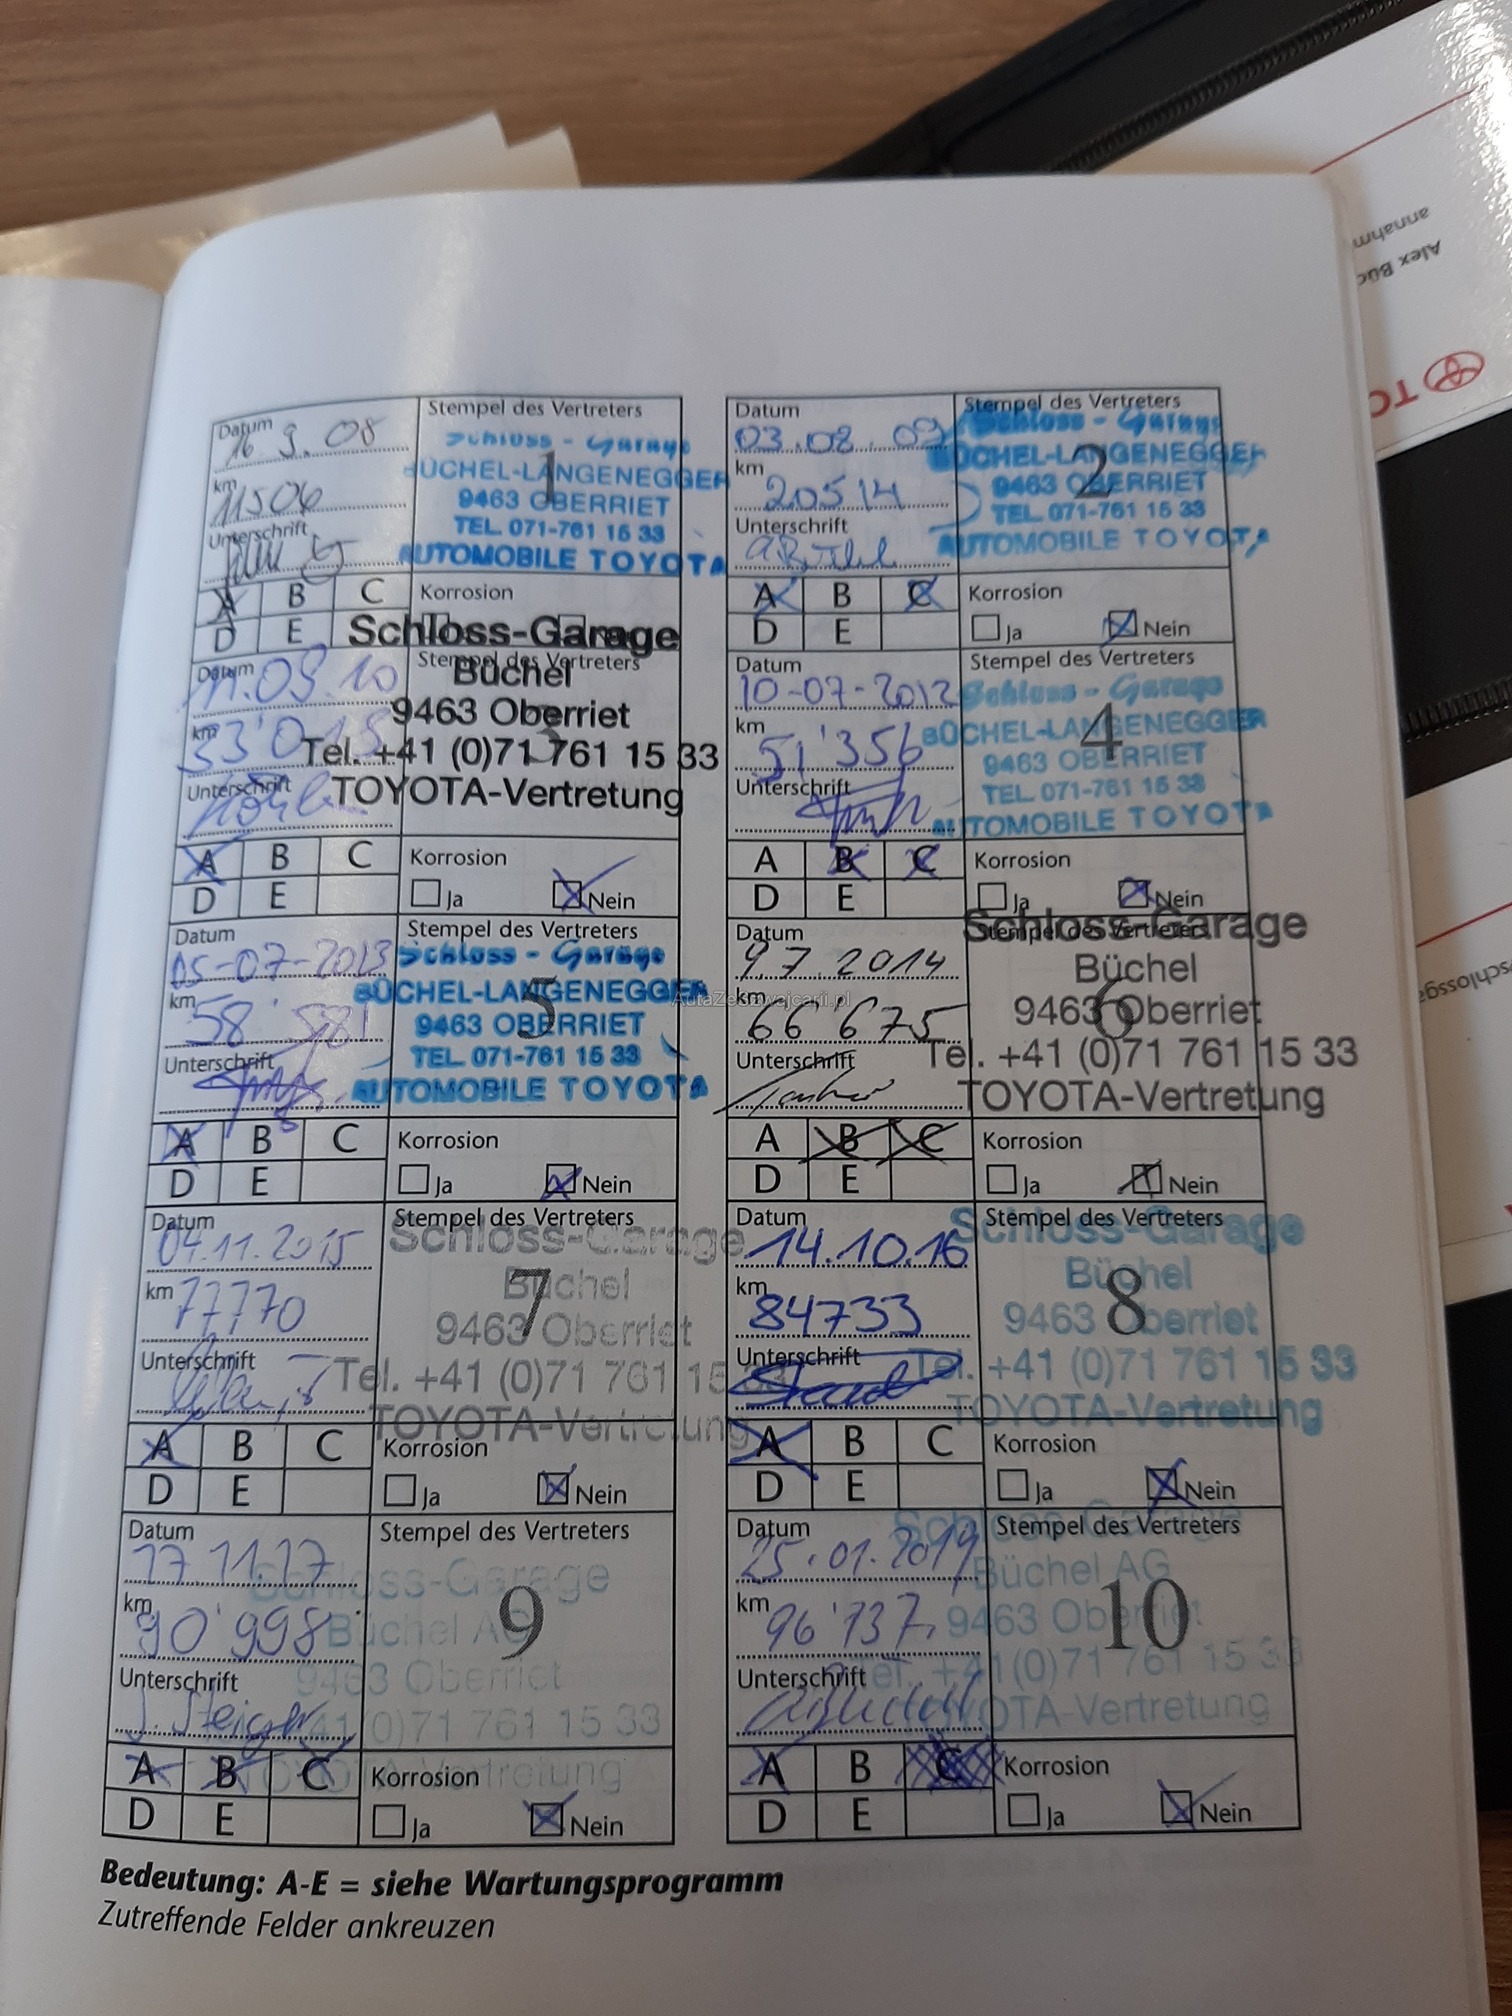 Datum
16 9. 08
km
11506
Unterschrift
Stempel des Vertreters
1
Schloss - Garage
BÜCHEL-LANGENEGGER
9463 OBERRIET
TEL. 071-761 15 33
AUTOMOBILE TOYOTA
A B C
D E
Korrosion
Datum
03.08.09
km
20514
Unterschrift
Stempel des Vertreters
2
Schloss - Garage
BÜCHEL-LANGENEGGER
9463 OBERRIET
TEL. 071-761 15 33
AUTOMOBILE TOYOTA
A B C
D E
Korrosion
Ja Nein
Datum
11.09.10
km
33'015
Unterschrift
Stempel des Vertreters
3
Schloss-Garage
Büchel
9463 Oberriet
Tel. +41 (0)71 761 15 33
TOYOTA-Vertretung
A B C
D E
Korrosion
Ja Nein
Datum
10-07-2012
km
51'356
Unterschrift
Stempel des Vertreters
4
Schloss - Garage
BÜCHEL-LANGENEGGER
9463 OBERRIET
TEL. 071-761 15 33
AUTOMOBILE TOYOTA
A B C
D E
Korrosion
Ja Nein
Datum
05-07-2013
km
58'581
Unterschrift
Stempel des Vertreters
5
Schloss - Garage
BÜCHEL-LANGENEGGER
9463 OBERRIET
TEL. 071-761 15 33
AUTOMOBILE TOYOTA
A B C
D E
Korrosion
Ja Nein
Datum
9.7 2014
km
66'675
Unterschrift
Stempel des Vertreters
6
Schloss-Garage
Büchel
9463 Oberriet
Tel. +41 (0)71 761 15 33
TOYOTA-Vertretung
A B C
D E
Korrosion
Ja Nein
Datum
04.11.2015
km
77770
Unterschrift
Stempel des Vertreters
7
Schloss-Garage
Büchel
9463 Oberriet
Tel. +41 (0)71 761 15 33
TOYOTA-Vertretung
A B C
D E
Korrosion
Ja Nein
Datum
14.10.16
km
84733
Unterschrift
Stempel des Vertreters
8
Schloss-Garage
Büchel
9463 Oberriet
Tel. +41 (0)71 761 15 33
TOYOTA-Vertretung
A B C
D E
Korrosion
Ja Nein
Datum
17 11.17
km
90'998
Unterschrift
J. Steiger
Stempel des Vertreters
9
Schloss-Garage
Büchel AG
9463 Oberriet
+41 (0)71 761 15 33
TOYOTA-Vertretung
A B C
D E
Korrosion
Ja Nein
Datum
25.01.2019
km
96'137
Unterschrift
Stempel des Vertreters
10
Schloss-Garage
Büchel AG
9463 Oberriet
Tel. +41 (0)71 761 15 33
TOYOTA-Vertretung
A B C
D E
Korrosion
Ja Nein
Bedeutung: A-E = siehe Wartungsprogramm
Zutreffende Felder ankreuzen
AutaZeSzwajcarii.pl
Alex Büc
annahm
TO
schlossga